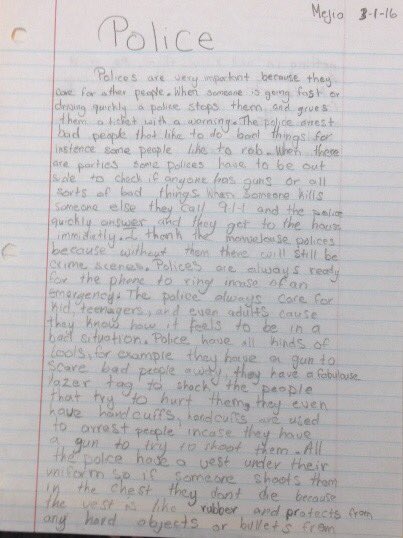 Mejio 3-1-16
Police
Polices are very important because they
care for other people. When someone is going fast or
driving quickly a police stops them and gives
them a ticket with a warning. The police arrest
bad people that like to do bad things for
instence some people like to rob. When there
are parties some polices have to be out
side to check if anyone has guns or all
sorts of bad things. When someone kills
someone else they call 911 and the police
quickly answer and they get to the house
immidiatly. I thank the polices
because without them there will still be
crime scences. Polices are always ready
for the phone to ring incase of an
emergency. The police always care for
kid, teenagers, and even adults cause
they know how it feels to be in a
bad situation. Police have all kinds of
tools, for example they have a gun to
scare bad people away, they have a fabulouse
lazer tag to shock the people
that try to hurt them, they even
have handcuffs, handcuffs are used
to arrest people incase they have
a gun to try to shoot them. All
the police have a vest under their
uniform so if someone shoots them
in the chest they dont die because
the vest is like rubber and protects from
any hard objects or bullets from